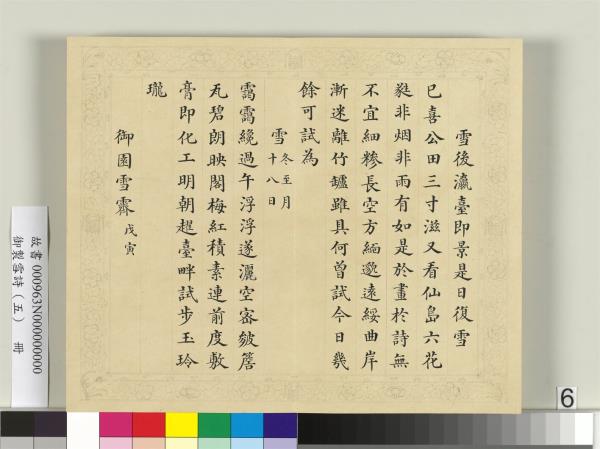 雪後瀛臺即景是日復雪
已喜公田三寸滋又看仙島六花
蕤非烟非雨有如是於畫於詩無
不宜細糝長空方緬邈遠綏曲岸
漸迷離竹罏雖具何曾試今日幾
餘可試為
雪 冬至月
十八日
靄靄纔過午浮浮遂灑空密皴簷
瓦碧朗映閣梅紅積素連前度敷
膏即化工明朝趯臺畔試步玉玲
瓏
御園雪霽 戊寅
故書 000963N000000000
御製雪詩（五） 冊
6